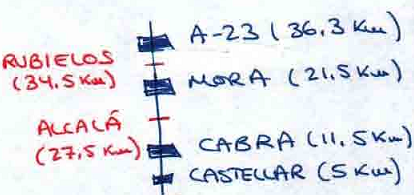 A-23 (36,3 Km)
RUBIELOS
(34,5 Km)
MORA (21,5 Km)
ALCALÁ
(27,5 Km)
CABRA (11,5 Km)
CASTELLAR (5 Km)